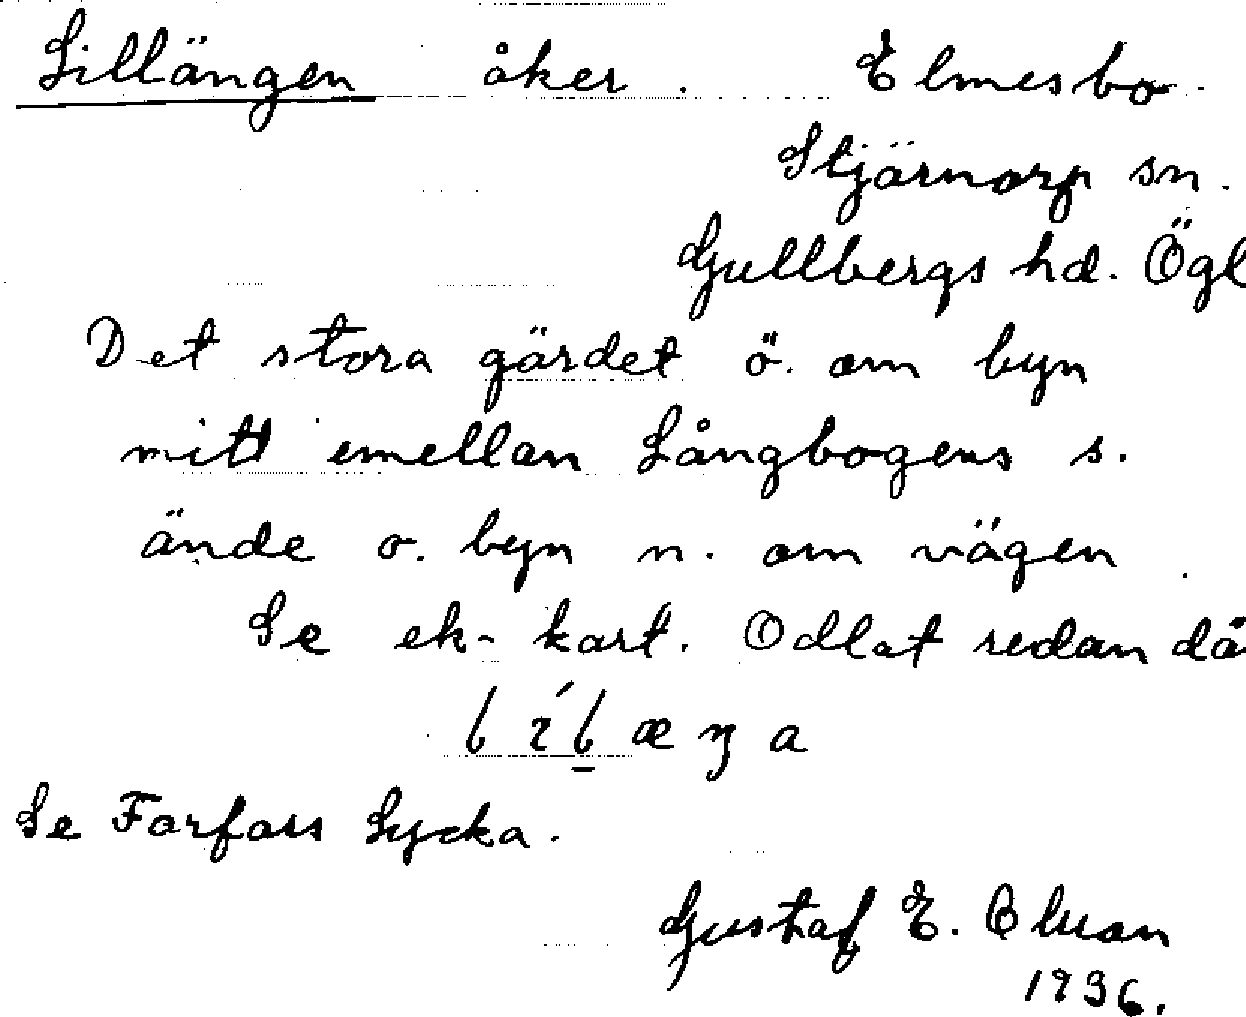 Lillängen åker. Elmesbo
Stjärnorp sn.
Gullbergs hd. Ögl
Det stora gärdet ö. om byn
mitt emellan Långbogens s.
ände o. byn n. om vägen
Se ek-kart. Odlat redan då
lílæŋa
Se Farfars Lycka.
Gustaf E.
1936.